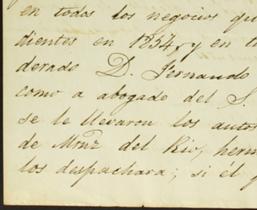 en todos los negocios qu
dientes en 1834, y en t
dorado D. Fernando
como a abogado del S.
se le llevaron los autos
de Mrnz del Rio, herm
los despachara; si el